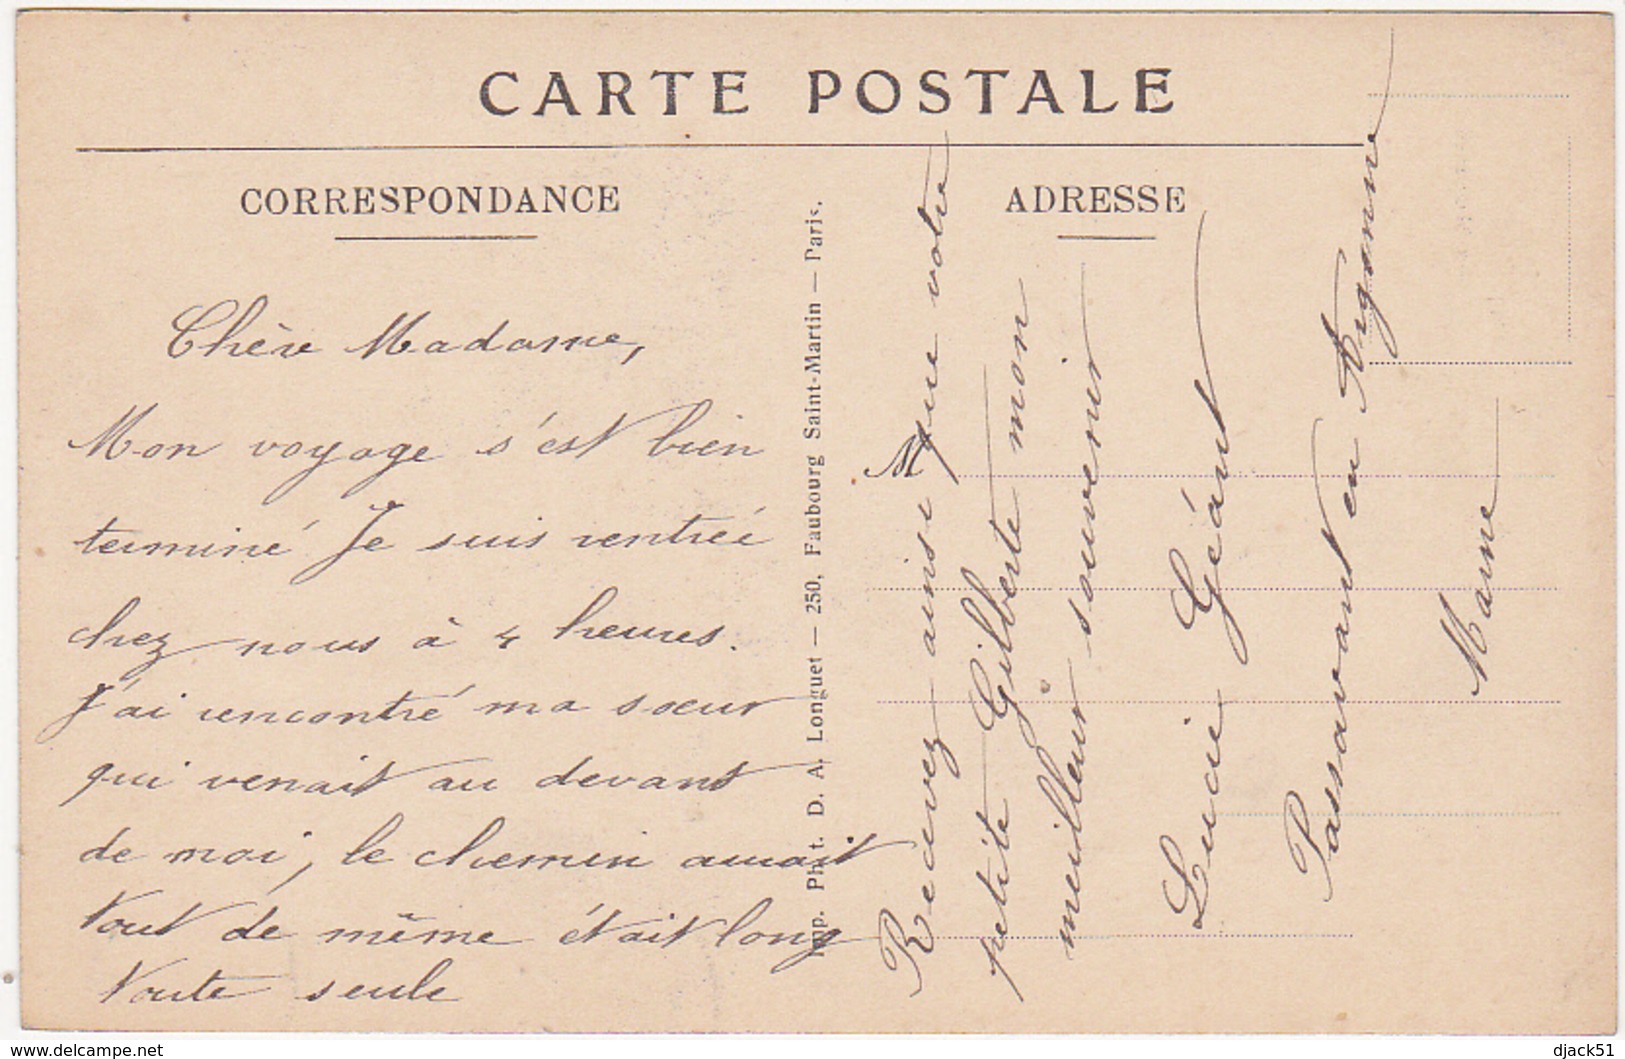 CARTE POSTALE
CORRESPONDANCE
ADRESSE
Chère Madame,
Mon voyage s'est bien
terminé Je suis rentrée
chez nous à 4 heures.
J'ai rencontré ma sœur
qui venait au devant
de moi, le chemin aurait
tout de même était long
toute seule
Imp. Phot. D. A. Longuet — 250, Faubourg Saint-Martin — Paris.
M
Recevez ainsi que votre
petite Gilberte mon
meilleur souvenir
Lucie Géant
Passavant en Argonne
Marne
www.delcampe.net
djack51